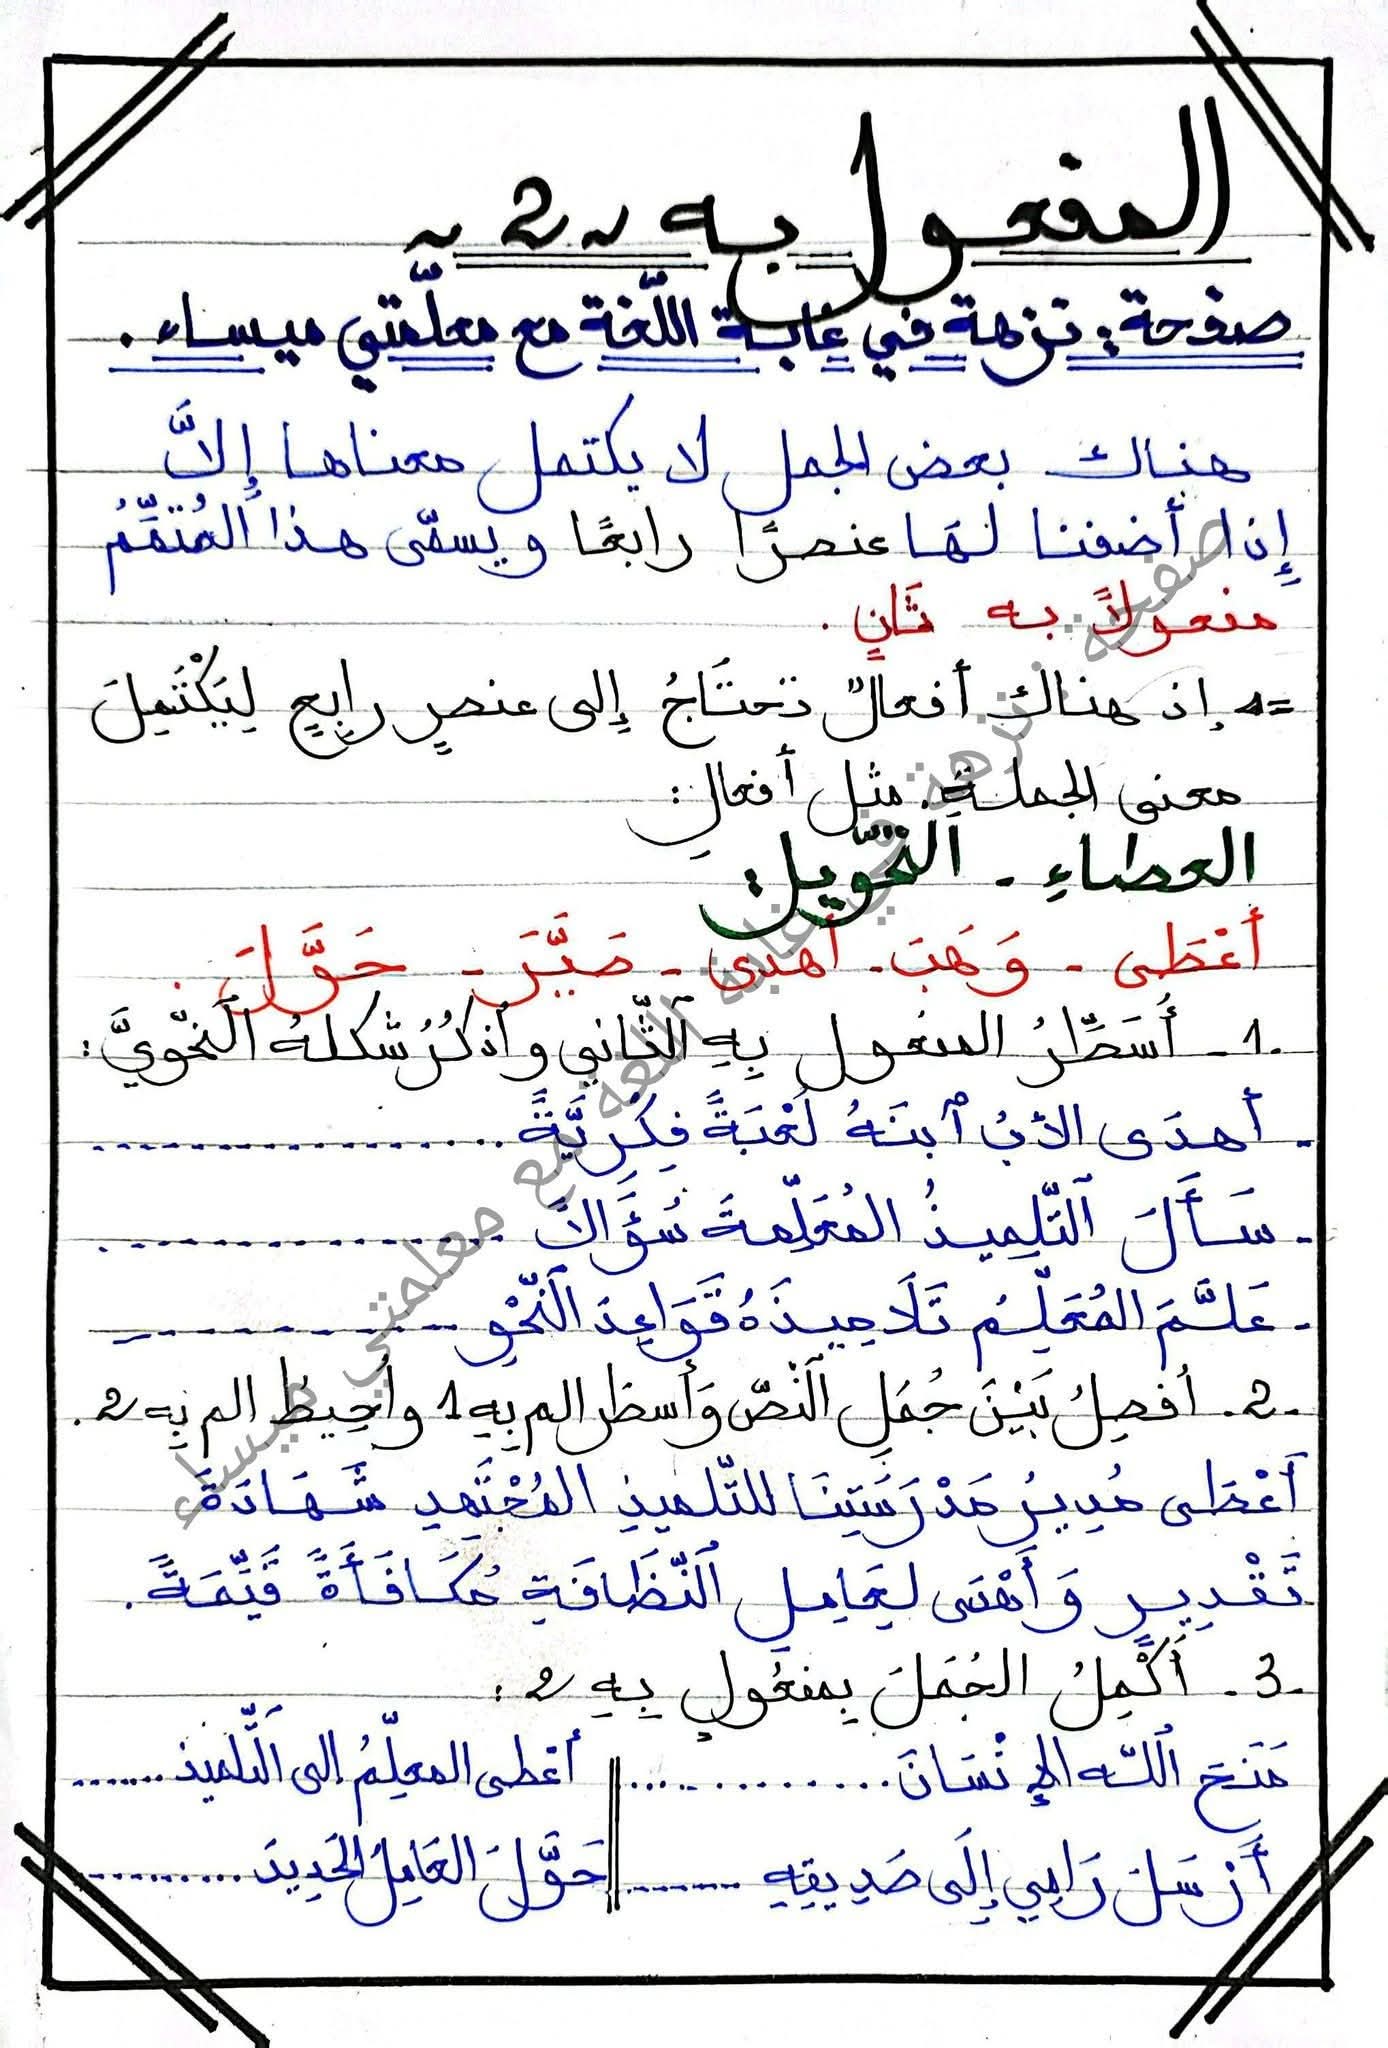 المفعول به ~2~
صفحة: نزهة في غابة اللّغة مع معلّمتي ميساء.
هناك بعض الجمل لا يكتمل معناها إلاَّ
إذا أضفنا لهَا عنصرًا رابعًا ويسمّى هذا المُتمِّمُ
مفعولاً به ثَانٍ.
=> إذ هناك أفعالٌ تحتَاجُ إلى عنصرٍ رابعٍ لِيَكْتَمِلَ
معنى الجملة. مثل أفعالِ:
العطاءِ - اَلتحْوِيلِ:
أعْطَى - وَهَبَ - أهدى - صَيَّرَ - حَوَّلَ.
1- أُسَطِّرُ المفعول بِهِ اَلثَّانِي وأذكُرُ شكلهُ اَلنَّحْوِيَّ:
- أهدَى الأبُ اَبنَهُ لُعْبَةً فِكْرِيَّةً ..................
- سَأَلَ اَلتِّلمِيذُ المُعَلِّمةَ سُؤَالاً ..................
- عَلَّمَ المُعَلِّمُ تَلاَمِيذَهُ قَوَاعِدَ اَلنَّحْوِ ..................
2- أفصِلُ بَيْنَ جُمَلِ اَلنَّصِّ وَأسطر الم بِهِ 1 وأُحِيطُ الم بِهِ 2.
أعْطَى مُدِيرُ مَدْرَسَتِنَا للتّلميذِ المُجْتَهِدِ شَهَادَةَ
تَقْدِيرٍ وَأَهْدَى لِعَامِلِ اَلنَّظَافَةِ مُكَافَأَةً قَيِّمَةً.
3- أُكْمِلُ الجُمَلَ بِمفعُولٍ بِهِ 2:
مَنَحَ اَللّه الإنْسَانَ ..............
أعْطى المعلِّمُ إلى اَلتّلميذ .......
أَرْسَلَ رَامِي إلَى صَدِيقِهِ ........
حَوَّلَ العَامِلُ الحَدِيدَ ..........
صفحة: نزهة في غابة اللغة مع معلمتي ميساء